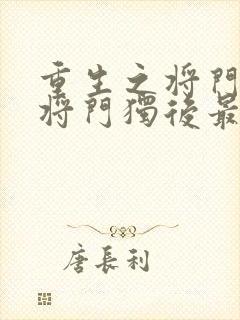 重生之将門
将門獨後最
唐長利